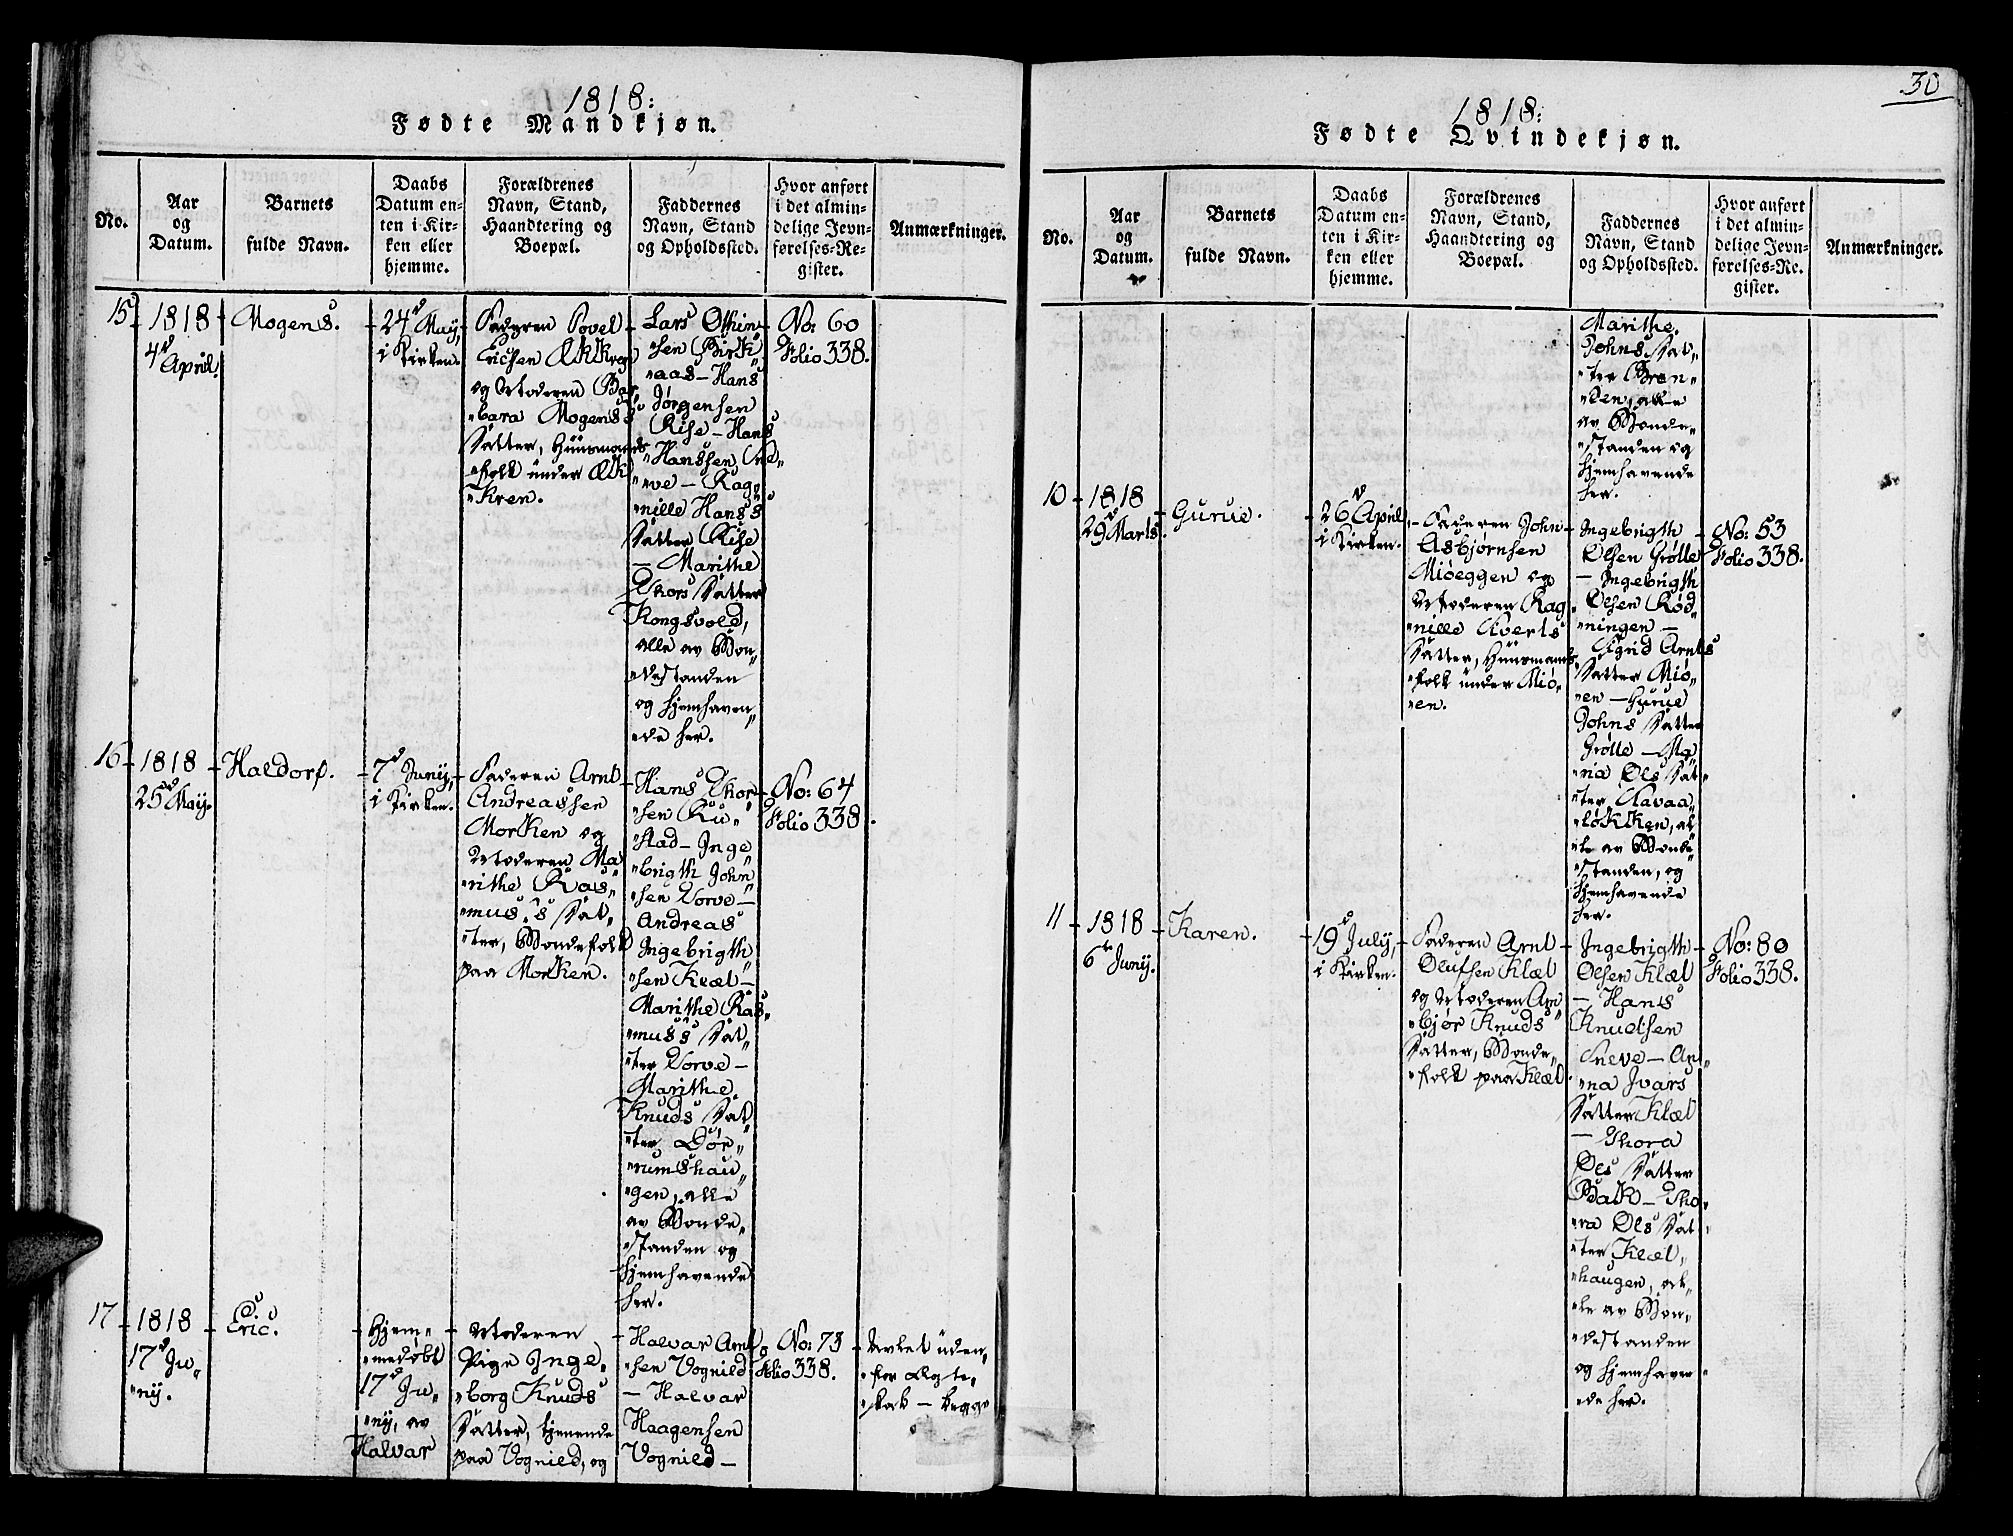 1818:
Fødte Mandkjøn.
No.
Aar
og
Datum.
Barnets
fulde Navn.
Daabs
Datum en-
ten i Kir-
ken eller
hjemme.
Forældrenes
Navn, Stand,
Haandtering og
Boepæl.
Faddernes
Navn, Stand
og Opholdssted.
Hvor anført
i det almin-
delige Jevn-
førelses-Re-
gister.
Anmærkninger.
15
1818
4d April.
Mogens.
24d May,
i Kirken.
Faderen Povel
Ericsen
og Moderen Bar„
„bara Mogens's
Datter, Huusmands
„folk under
„Kren.
Lars Othin
„sen Birk„
„aas — Hans
Jørgensen
Rise — Hans
„Hanssen
„ve — Rag„
„nille Hans's
Datter Rise
— Marithe
Thors Datter
Kongsvold,
alle av Bon„
„destanden
og hjemhaven„
„de her.
No: 60
Folio 338.
16
1818
25d May.
Haldor.
7d Juny,
i Kirken.
Faderen Arnt
Andreassen
Morken og
Moderen Ma
„rithe Ras„
„mus's Dat„
„ter, Bondefolk
paa Morken.
Hans Thor
„sen Ru„
„stad — Inge„
„brigth John„
„sen Vorve —
Andreas
Ingebrigth„
„sen Klæt —
Marithe Ras„
„mus's Dat„
„ter Vorve —
Marithe
Knuds Dat„
„ter Dør„
„rumshau„
„gen, alle
av Bonde„
„standen og
hjemhavende
her.
No: 64
Folio 338.
17
1818
17d Ju„
„ny.
Eric.
Hjem„
„medøbt
17d Ju„
„ny, av
Halvar
Moderen
Pige Inge„
„borg Knuds
Datter, tjenende
paa Vognild, og
Halvar Arnt
„sen Vognild
— Halvar
Haagensen
Vognild —
No: 73
Folio 338.
Avlet uden„
„for Ægte„
„skab — begge
30
1818:
Fødte Qvindekjøn.
No.
Aar
og
Datum.
Barnets
fulde Navn.
Daabs
Datum en-
ten i Kir-
ken eller
hjemme.
Forældrenes
Navn, Stand,
Haandtering og
Boepæl.
Faddernes
Navn, Stand
og Opholdssted.
Hvor anført
i det almin-
delige Jevn-
førelses-Re-
gister.
Anmærkninger.
Marithe
Johns Dat„
„ter Bren„
„den, alle
av Bonde„
„standen og
hjemhavende
her.
10
1818
29d Marts.
Gurue.
26d April,
i Kirken.
Faderen John
Asbjørnsen
Miøeggen og
Moderen Rag„
„nille Sverts
Datter, Huusmands„
„folk under Miø„
„en.
Ingebrigth
Olsen Grølle
— Ingebrigth
Olsen Rød„
„ningen —
Sigrid Arnts
Datter Miø„
„en — Gurue
Johns Datter
Grølle — Ma„
„ria Ols Dat„
„ter
„løkken, al„
„le av Bonde„
„standen, og
hjemhavende
her.
No: 53
Folio 338.
11
1818
6te Juny.
Karen.
19d July,
i Kirken.
Faderen Arnt
Olufsen Klæt
og Moderen Arn
„bjør Knuds
Datter, Bonde„
„folk paa Klæt.
Ingebrigth
Olsen Klæt
— Hans
Knudtsen
Sneve — An„
„na Ivars
Datter Klæt
— Thora
Ols Datter
Balk — Tho„
„ra Ols Dat„
„ter Klæt„
„haugen, al„
„le av Bon„
„destanden
og hjemhaven„
„de her.
No: 80
Folio 338.